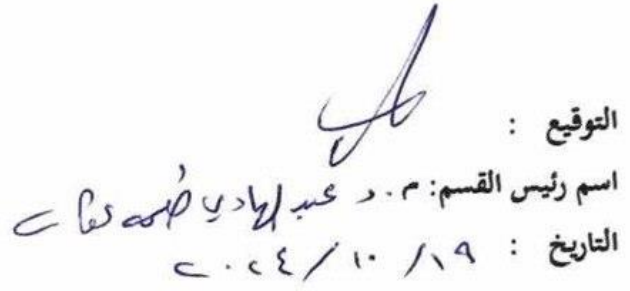 التوقيع :
اسم رئيس القسم: م. د عبد الهادي
التاريخ : ١٩/ ١٠/ ٢٠٢٤